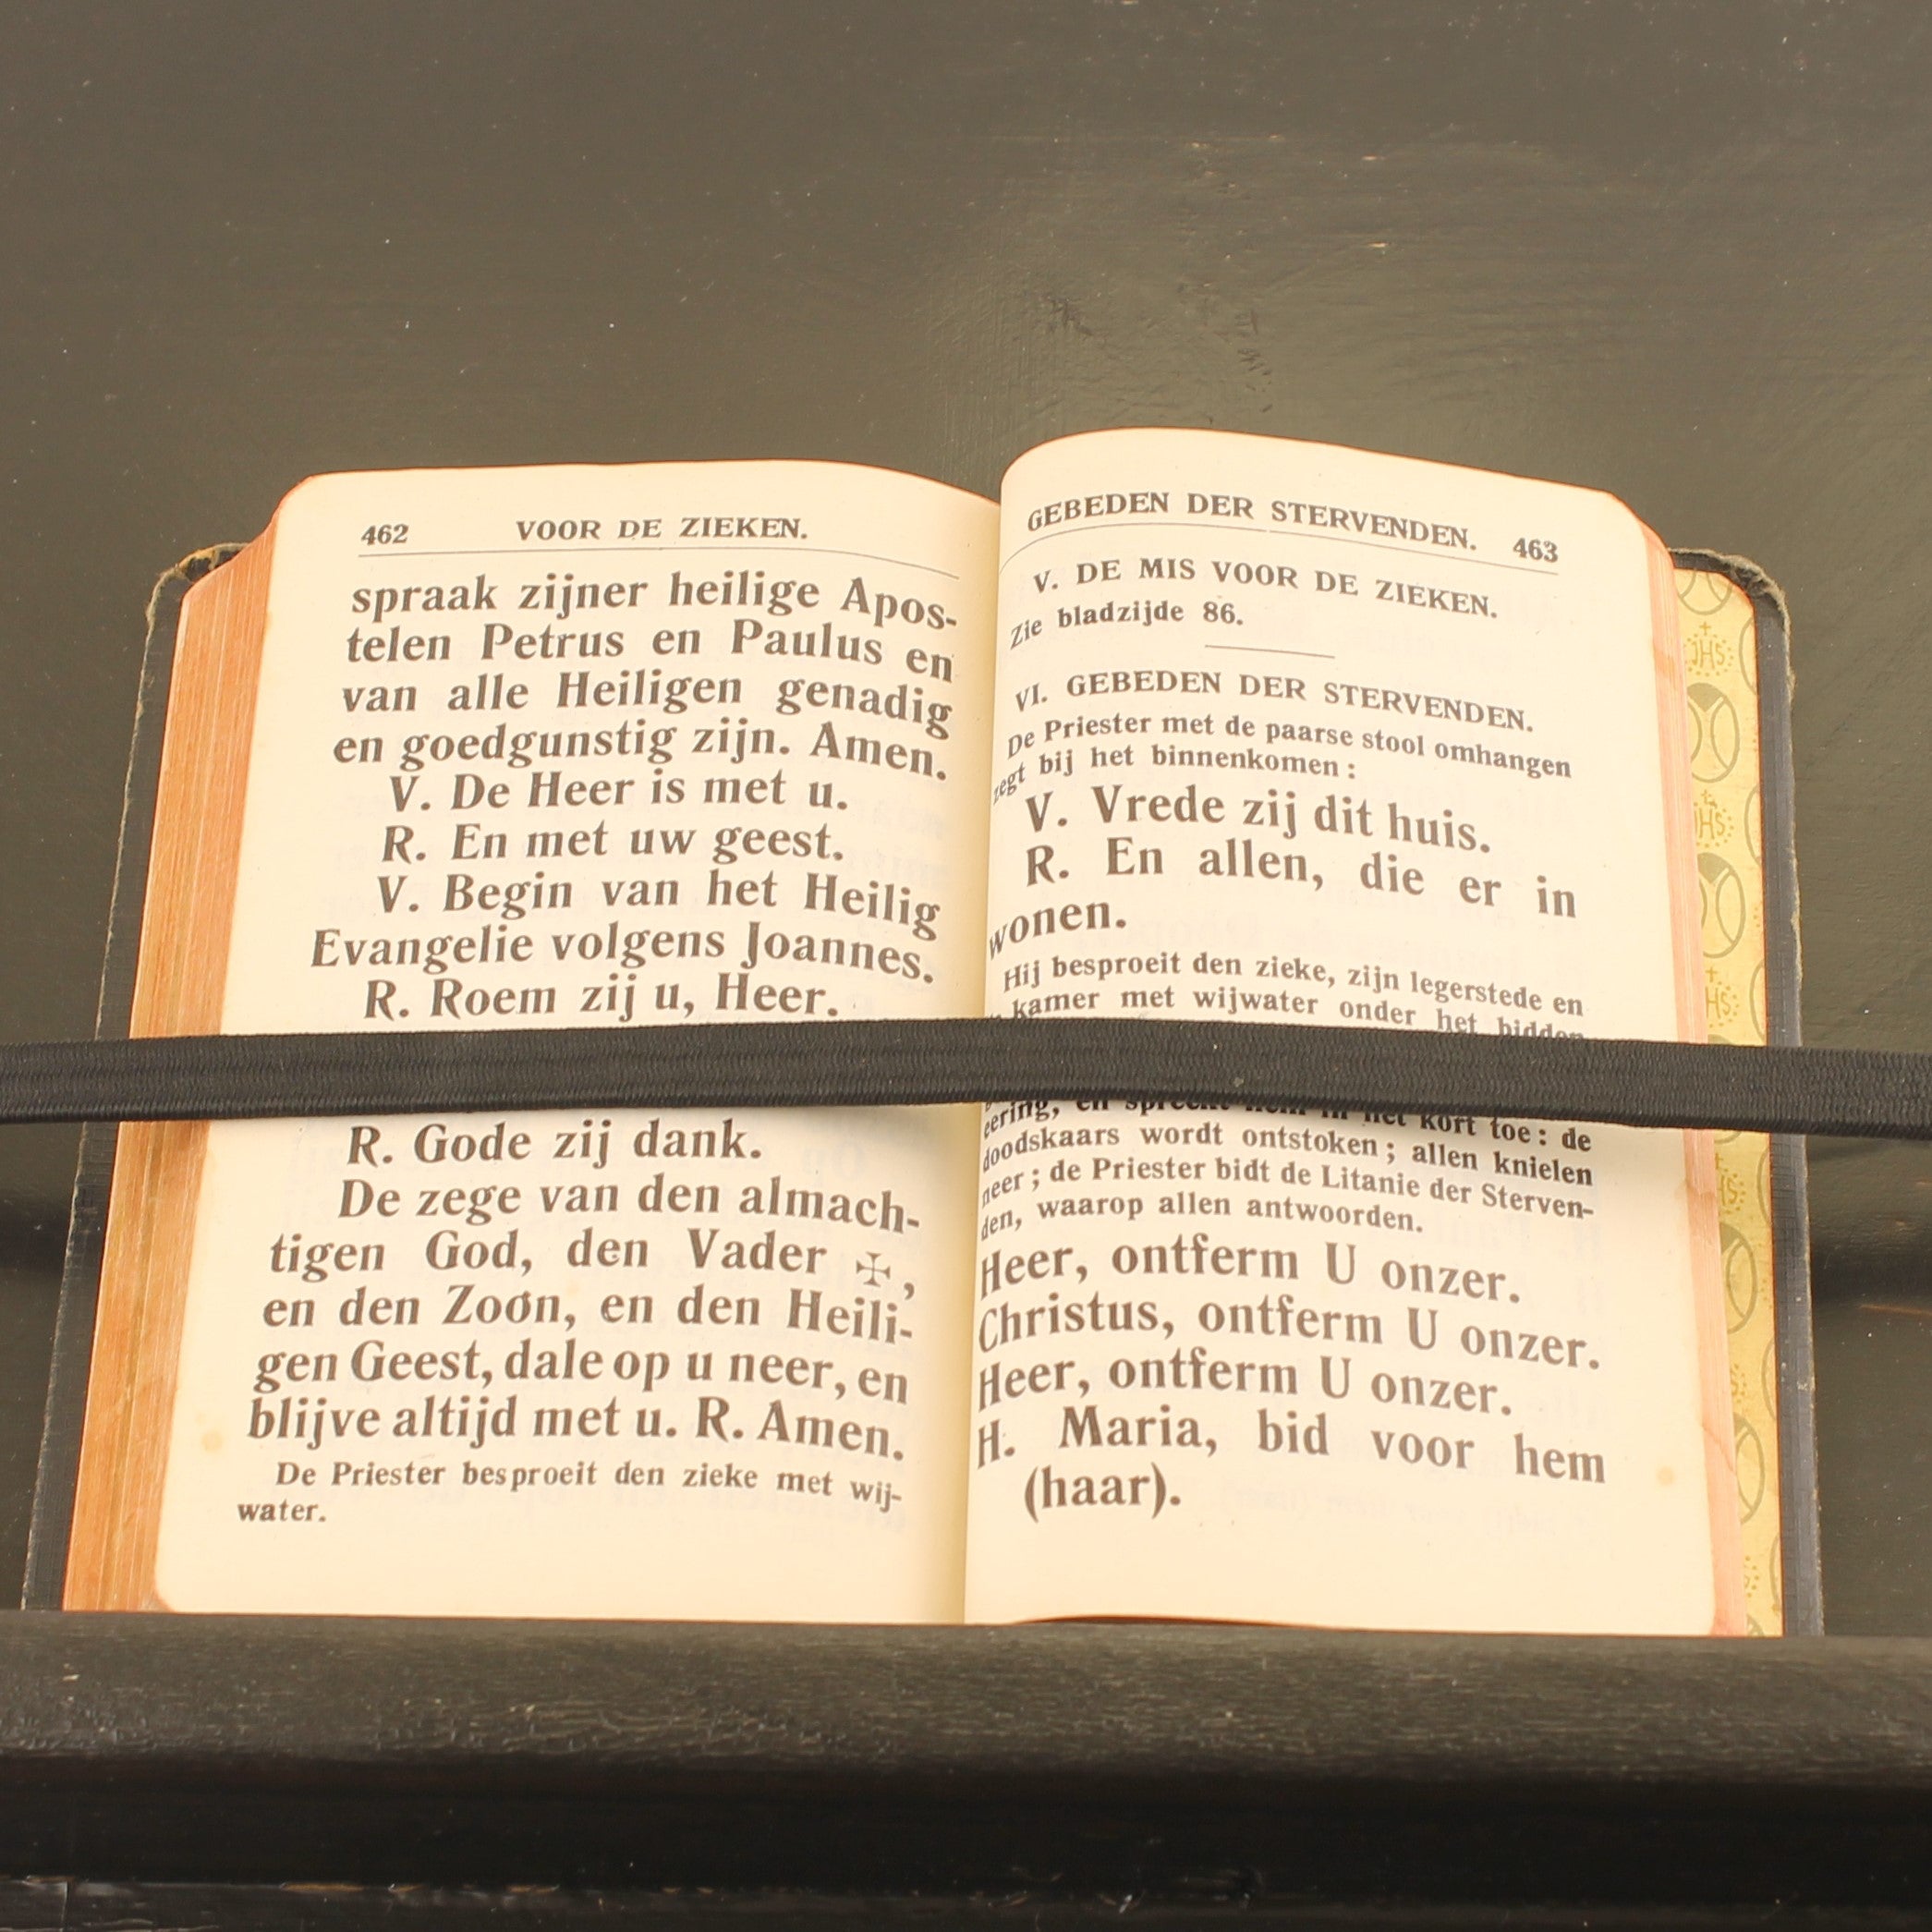 462 VOOR DE ZIEKEN.
spraak zijner heilige Apos-
telen Petrus en Paulus en
van alle Heiligen genadig
en goedgunstig zijn. Amen.
V. De Heer is met u.
R. En met uw geest.
V. Begin van het Heilig
Evangelie volgens Joannes.
R. Roem zij u, Heer.
R. Gode zij dank.
De zege van den almach-
tigen God, den Vader ✠,
en den Zoon, en den Heili-
gen Geest, dale op u neer, en
blijve altijd met u. R. Amen.
De Priester besproeit den zieke met wij-
water.
GEBEDEN DER STERVENDEN. 463
V. DE MIS VOOR DE ZIEKEN.
Zie bladzijde 86.
VI. GEBEDEN DER STERVENDEN.
De Priester met de paarse stool omhangen
zegt bij het binnenkomen :
V. Vrede zij dit huis.
R. En allen, die er in
wonen.
Hij besproeit den zieke, zijn legerstede en
kamer met wijwater onder het bidden
eering, en spreekt hem in het kort toe : de
doodskaars wordt ontstoken ; allen knielen
neer ; de Priester bidt de Litanie der Sterven-
den, waarop allen antwoorden.
Heer, ontferm U onzer.
Christus, ontferm U onzer.
Heer, ontferm U onzer.
H. Maria, bid voor hem
(haar).
JHS
JHS
HS
HS